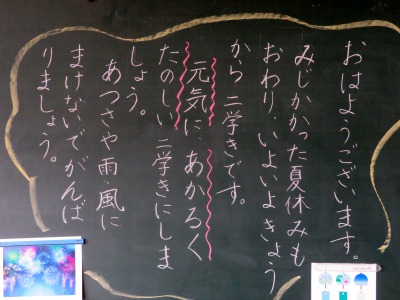 おはようございます。
みじかかった夏休みも
おわり、いよいよきょう
から 二学きです。
元気に、あかるく
たのしい 二学きにしま
しょう。
あつさや雨・風に
まけないでがんば
りましょう。